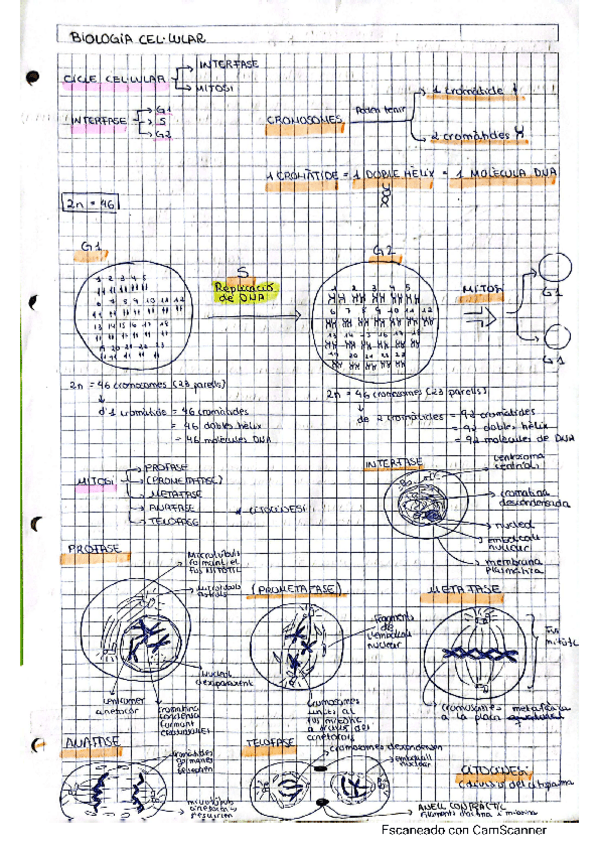 BIOLOGIA CEL·LULAR
CICLE CEL·LULAR → INTERFASE
→ MITOSI
INTERFASE → G1
→ S
→ G2
CROMOSOMES Poden tenir
1 cromàtide
2 cromàtides
1 CROMÀTIDE = 1 DOBLE HÈLIX = 1 MOLÈCULA DNA
2n = 46
G1
S
Replicació
de DNA
G2
MITOSI
G1
G1
1 2 3 4 5
6 7 8 9 10 11 12
13 14 15 16 17 18
19 20 21 22 23
1 2 3 4 5
6 7 8 9 10 11 12
13 14 15 16 17 18
19 20 21 22 23
2n = 46 cromosomes (23 parells)
d'1 cromàtide = 46 cromàtides
= 46 dobles hèlix
= 46 molècules DNA
2n = 46 cromosomes (23 parells)
de 2 cromàtides = 92 cromàtides
= 92 dobles hèlix
= 92 molècules de DNA
MITOSI → PROFASE
→ (PROMETAFASE)
→ METAFASE
→ ANAFASE
→ TELOFASE
* CITOCINESI
INTERFASE
centrosoma
centríols
cromatina
descondensada
nuclèol
embolcall
nuclear
membrana
plasmàtica
PROFASE
Microtúbuls
formant el
fus mitòtic
Microtúbuls
astrals
Nuclèol
desapareixent
centròmer
cinetocor
cromatina
condensa
formant
cromosomes
(PROMETAFASE)
Fragments
de
l'embolcall
nuclear
cromosomes
units al
fus mitòtic
a través dels
cinetocors
METAFASE
Fus
mitòtic
cromosomes metafàsics
a la placa equatorial
ANAFASE
cromàtides
germanes
se separen
microtúbuls
TELOFASE
cromosomes descondensen
embolcall
nuclear
ANELL CONTRÀCTIL
filaments d'actina i miosina
CITOCINESI:
del citoplasma
Escaneado con CamScanner